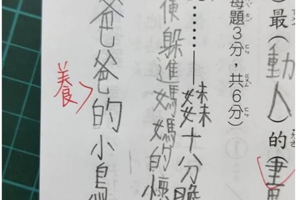 最(動人)的重
每題3分，共6分)
……——妹妹十分膽
便躲進媽媽的懷
爸爸的小鳥
養